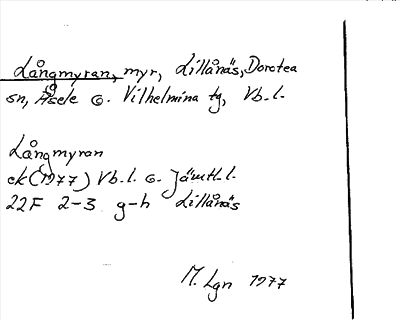 Långmyran, myr, Lillånäs, Dorotea
sn, Åsele o. Vilhelmina tg, Vb.l.
Långmyran
ek (1977) Vb.l. o. Jämtl.l.
22F 2-3 g-h Lillånäs
M. Lgn 1977